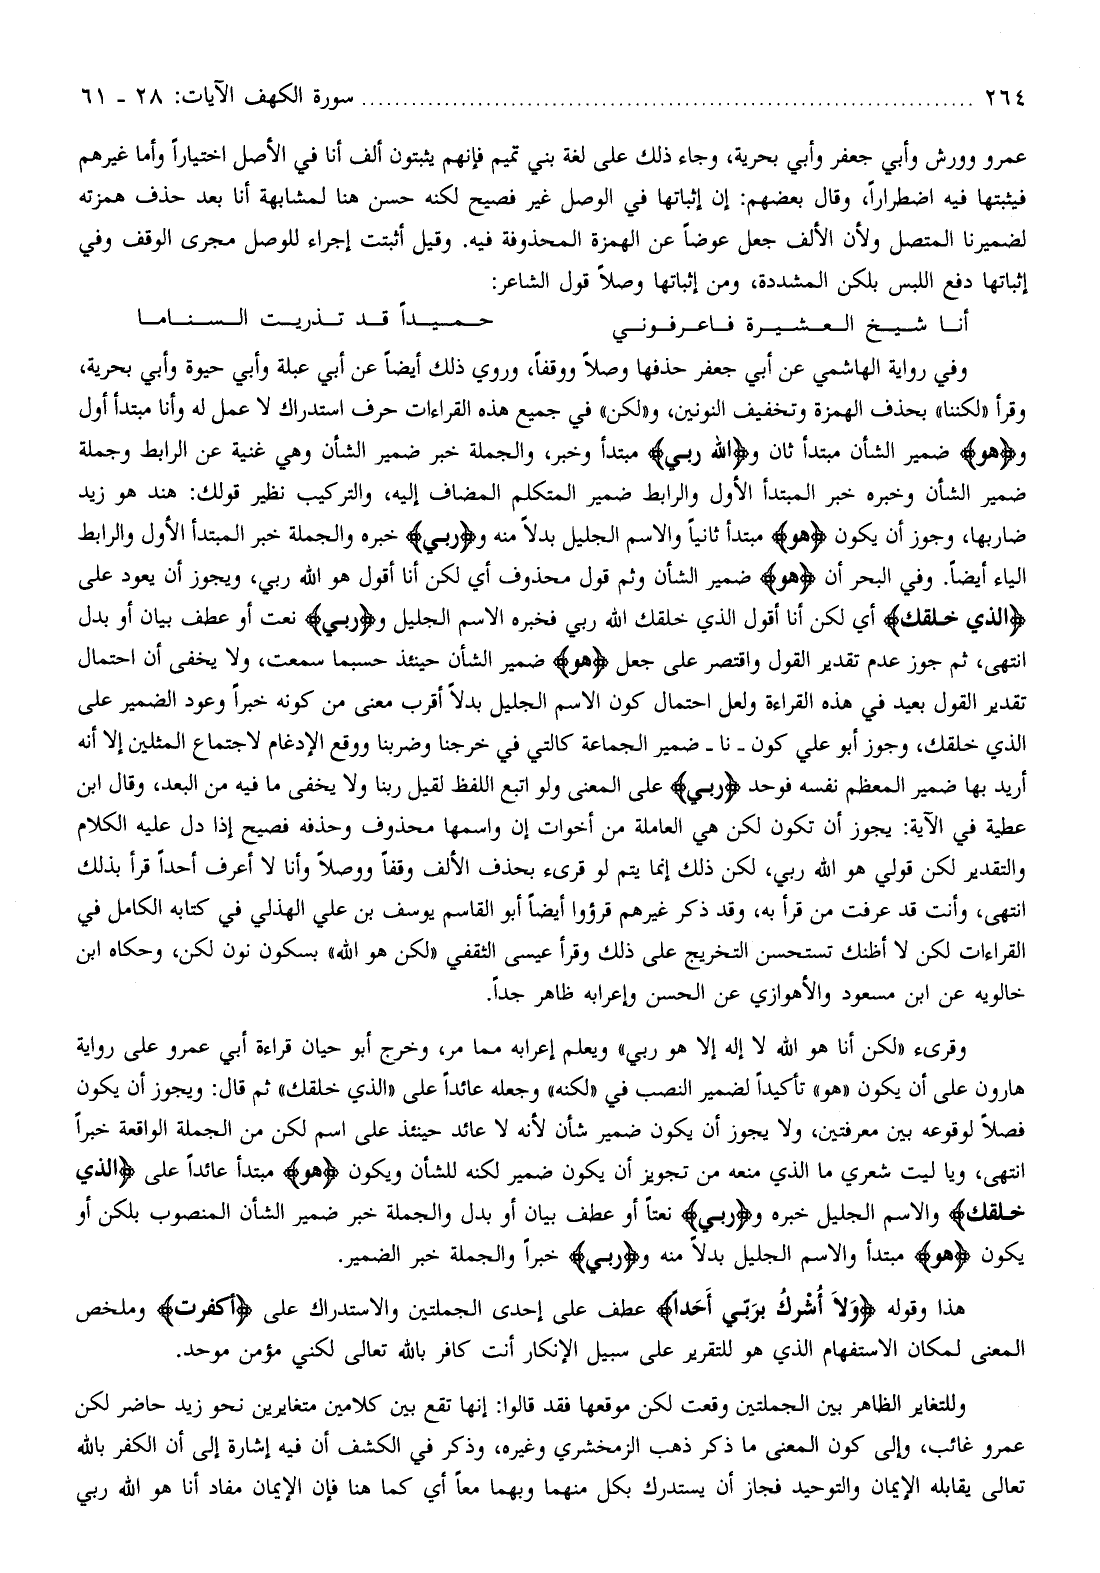 ٢٦٤ ........................................ سورة الكهف الآيات: ٢٨ - ٦١
عمرو وورش وأبي جعفر وأبي بحرية، وجاء ذلك على لغة بني تميم فإنهم يثبتون ألف أنا في الأصل اختياراً وأما غيرهم
فيثبتها فيه اضطراراً، وقال بعضهم: إن إثباتها في الوصل غير فصيح لكنه حسن هنا لمشابهة أنا بعد حذف همزته
لضميرنا المتصل ولأن الألف جعل عوضاً عن الهمزة المحذوفة فيه. وقيل أثبتت إجراء للوصل مجرى الوقف وفي
إثباتها دفع اللبس بلكن المشددة، ومن إثباتها وصلاً قول الشاعر:
أنـا شيـخ العـشيـرة فـاعـرفـونـي حـمـيـداً قـد تـذريـت الـسـنـامـا
وفي رواية الهاشمي عن أبي جعفر حذفها وصلاً ووقفاً، وروي ذلك أيضاً عن أبي عبلة وأبي حيوة وأبي بحرية،
وقرأ «لكننا» بحذف الهمزة وتخفيف النونين، و«لكن» في جميع هذه القراءات حرف استدراك لا عمل له وأنا مبتدأ أول
و﴿هو﴾ ضمير الشأن مبتدأ ثان و﴿الله ربي﴾ مبتدأ وخبر، والجملة خبر ضمير الشأن وهي غنية عن الرابط وجملة
ضمير الشأن وخبره خبر المبتدأ الأول والرابط ضمير المتكلم المضاف إليه، والتركيب نظير قولك: هند هو زيد
ضاربها، وجوز أن يكون ﴿هو﴾ مبتدأ ثانياً والاسم الجليل بدلاً منه و﴿ربي﴾ خبره والجملة خبر المبتدأ الأول والرابط
الياء أيضاً. وفي البحر أن ﴿هو﴾ ضمير الشأن وثم قول محذوف أي لكن أنا أقول هو الله ربي، ويجوز أن يعود على
﴿الذي خلقك﴾ أي لكن أنا أقول الذي خلقك الله ربي فخبره الاسم الجليل و﴿ربي﴾ نعت أو عطف بيان أو بدل
انتهى، ثم جوز عدم تقدير القول واقتصر على جعل ﴿هو﴾ ضمير الشأن حينئذ حسبما سمعت، ولا يخفى أن احتمال
تقدير القول بعيد في هذه القراءة ولعل احتمال كون الاسم الجليل بدلاً أقرب معنى من كونه خبراً وعود الضمير على
الذي خلقك، وجوز أبو علي كون ـ نا ـ ضمير الجماعة كالتي في خرجنا وضربنا ووقع الإدغام لاجتماع المثلين إلا أنه
أريد بها ضمير المعظم نفسه فوحد ﴿ربي﴾ على المعنى ولو اتبع اللفظ لقيل ربنا ولا يخفى ما فيه من البعد، وقال ابن
عطية في الآية: يجوز أن تكون لكن هي العاملة من أخوات إن واسمها محذوف وحذفه فصيح إذا دل عليه الكلام
والتقدير لكن قولي هو الله ربي، لكن ذلك إنما يتم لو قرىء بحذف الألف وقفاً ووصلاً وأنا لا أعرف أحداً قرأ بذلك
انتهى، وأنت قد عرفت من قرأ به، وقد ذكر غيرهم قرؤوا أيضاً أبو القاسم يوسف بن علي الهذلي في كتابه الكامل في
القراءات لكن لا أظنك تستحسن التخريج على ذلك وقرأ عيسى الثقفي «لكن هو الله» بسكون نون لكن، وحكاه ابن
خالويه عن ابن مسعود والأهوازي عن الحسن وإعرابه ظاهر جداً.
وقرىء «لكن أنا هو الله لا إله إلا هو ربي» ويعلم إعرابه مما مر، وخرج أبو حيان قراءة أبي عمرو على رواية
هارون على أن يكون «هو» تأكيداً لضمير النصب في «لكنه» وجعله عائداً على «الذي خلقك» ثم قال: ويجوز أن يكون
فصلاً لوقوعه بين معرفتين، ولا يجوز أن يكون ضمير شأن لأنه لا عائد حينئذ على اسم لكن من الجملة الواقعة خبراً
انتهى، ويا ليت شعري ما الذي منعه من تجويز أن يكون ضمير لكنه للشأن ويكون ﴿هو﴾ مبتدأ عائداً على ﴿الذي
خلقك﴾ والاسم الجليل خبره و﴿ربي﴾ نعتاً أو عطف بيان أو بدل والجملة خبر ضمير الشأن المنصوب بلكن أو
يكون ﴿هو﴾ مبتدأ والاسم الجليل بدلاً منه و﴿ربي﴾ خبراً والجملة خبر الضمير.
هذا وقوله ﴿وَلاَ أُشْرِكُ بِرَبِّي أَحَداً﴾ عطف على إحدى الجملتين والاستدراك على ﴿أكفرت﴾ وملخص
المعنى لمكان الاستفهام الذي هو للتقرير على سبيل الإنكار أنت كافر بالله تعالى لكني مؤمن موحد.
وللتغاير الظاهر بين الجملتين وقعت لكن موقعها فقد قالوا: إنها تقع بين كلامين متغايرين نحو زيد حاضر لكن
عمرو غائب، وإلى كون المعنى ما ذكر ذهب الزمخشري وغيره، وذكر في الكشف أن فيه إشارة إلى أن الكفر بالله
تعالى يقابله الإيمان والتوحيد فجاز أن يستدرك بكل منهما وبهما معاً أي كما هنا فإن الإيمان مفاد أنا هو الله ربي